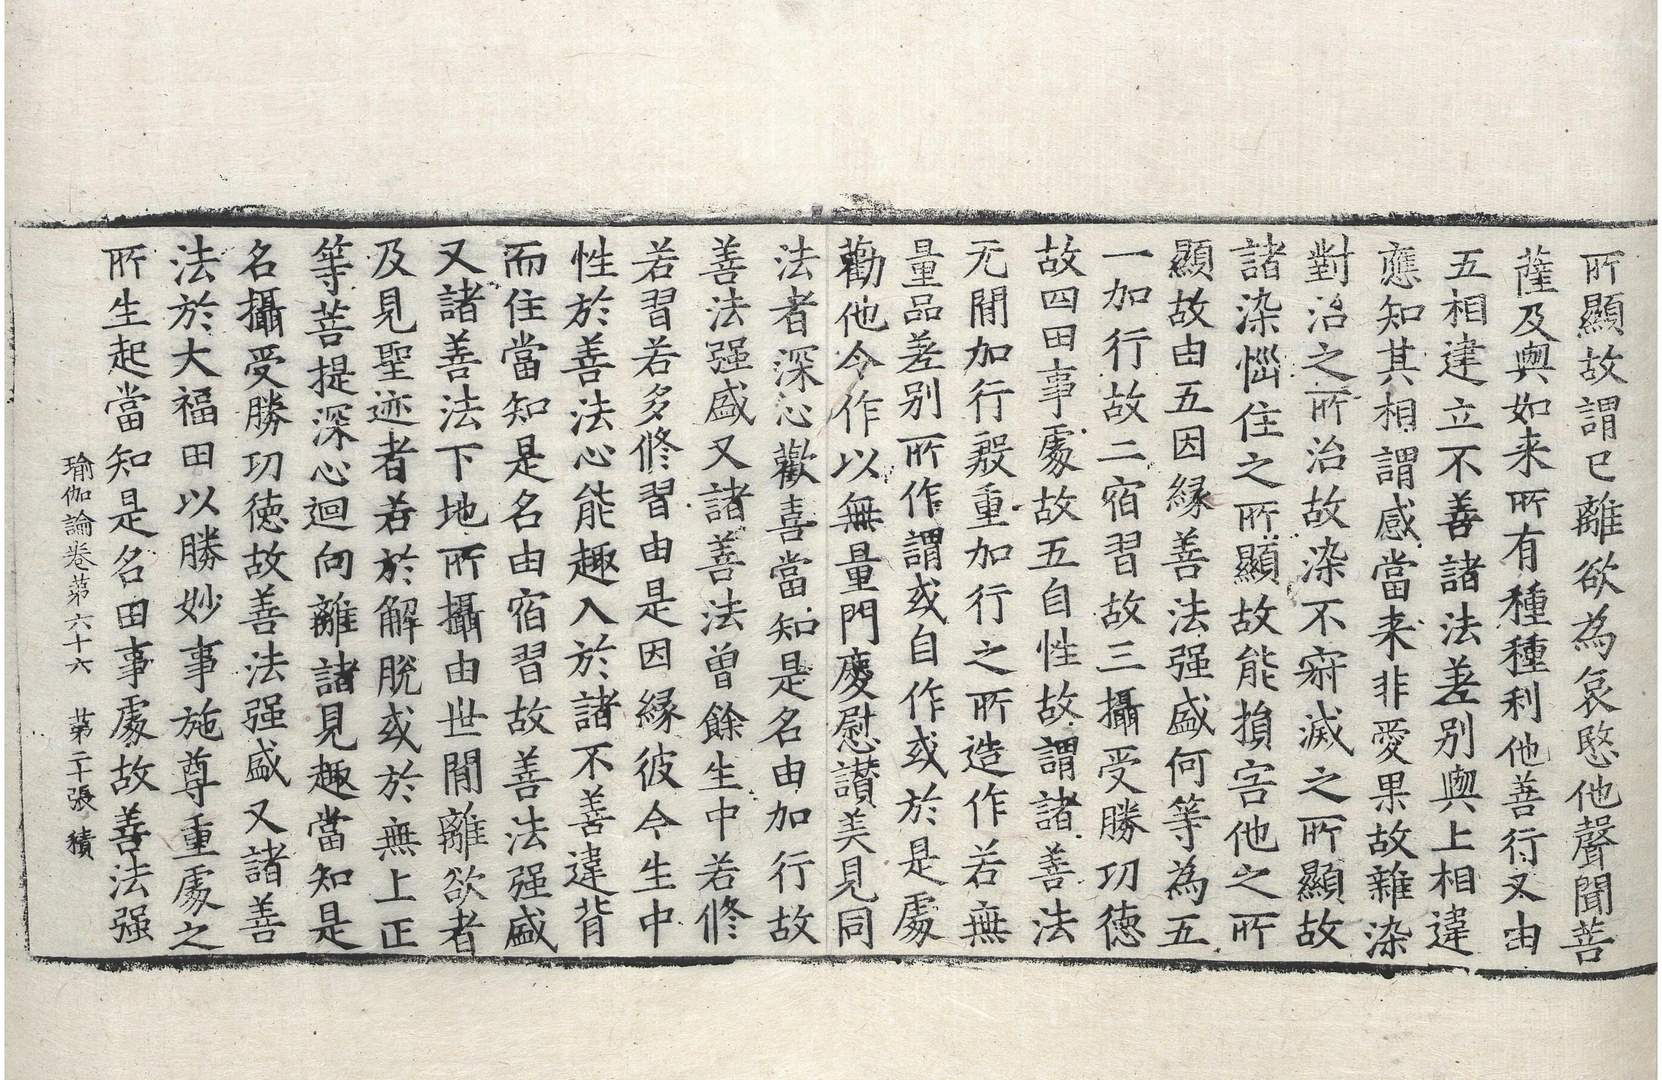 所顯故謂已離欲為哀愍他聲聞菩
薩及與如来所有種種利他善行又由
五相建立不善諸法差別與上相違
應知其相謂感當来非愛果故雜染
對治之所治故染不寂滅之所顯故
諸染惱住之所顯故能損害他之所
顯故由五因緣善法强盛何等為五
一加行故二宿習故三攝受勝功德
故四田事處故五自性故謂諸善法
无閒加行殷重加行之所造作若無
量品差別所作謂或自作或於是處
勸他令作以無量門慶慰讚美見同
法者深心歡喜當知是名由加行故
善法强盛又諸善法曾餘生中若修
若習若多修習由是因緣彼今生中
性於善法心能趣入於諸不善違背
而住當知是名由宿習故善法强盛
又諸善法下地所攝由世閒離欲者
及見聖迹者若於解脫或於無上正
等菩提深心迴向離諸見趣當知是
名攝受勝功德故善法强盛又諸善
法於大福田以勝妙事施尊重處之
所生起當知是名田事處故善法强
瑜伽論卷第六十六　第二十張　積